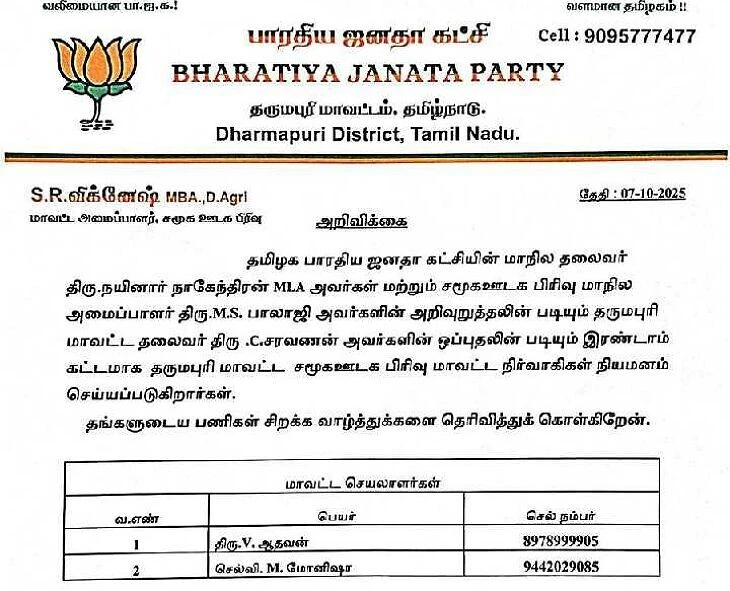 வலிமையான பா.ஐ.க.! வளமான தமிழகம்!!
பாரதிய ஜனதா கட்சி Cell : 9095777477
BHARATIYA JANATA PARTY
தருமபுரி மாவட்டம், தமிழ்நாடு.
Dharmapuri District, Tamil Nadu.
S.R.விக்னேஷ் MBA.,D.Agri தேதி : 07-10-2025
மாவட்ட அமைப்பாளர், சமூக ஊடக பிரிவு அறிவிக்கை
தமிழக பாரதிய ஜனதா கட்சியின் மாநில தலைவர்
திரு.நயினார் நாகேந்திரன் MLA அவர்கள் மற்றும் சமூகஊடக பிரிவு மாநில
அமைப்பாளர் திரு.M.S. பாலாஜி அவர்களின் அறிவுறுத்தலின் படியும் தருமபுரி
மாவட்ட தலைவர் திரு .C.சரவணன் அவர்களின் ஒப்புதலின் படியும் இரண்டாம்
கட்டமாக தருமபுரி மாவட்ட சமூகஊடக பிரிவு மாவட்ட நிர்வாகிகள் நியமனம்
செய்யப்படுகிறார்கள்.
தங்களுடைய பணிகள் சிறக்க வாழ்த்துக்களை தெரிவித்துக் கொள்கிறேன்.
மாவட்ட செயலாளர்கள்
வ.எண் பெயர் செல் நம்பர்
1 திரு.V. ஆதவன் 8978999905
2 செல்வி. M. மோனிஷா 9442029085